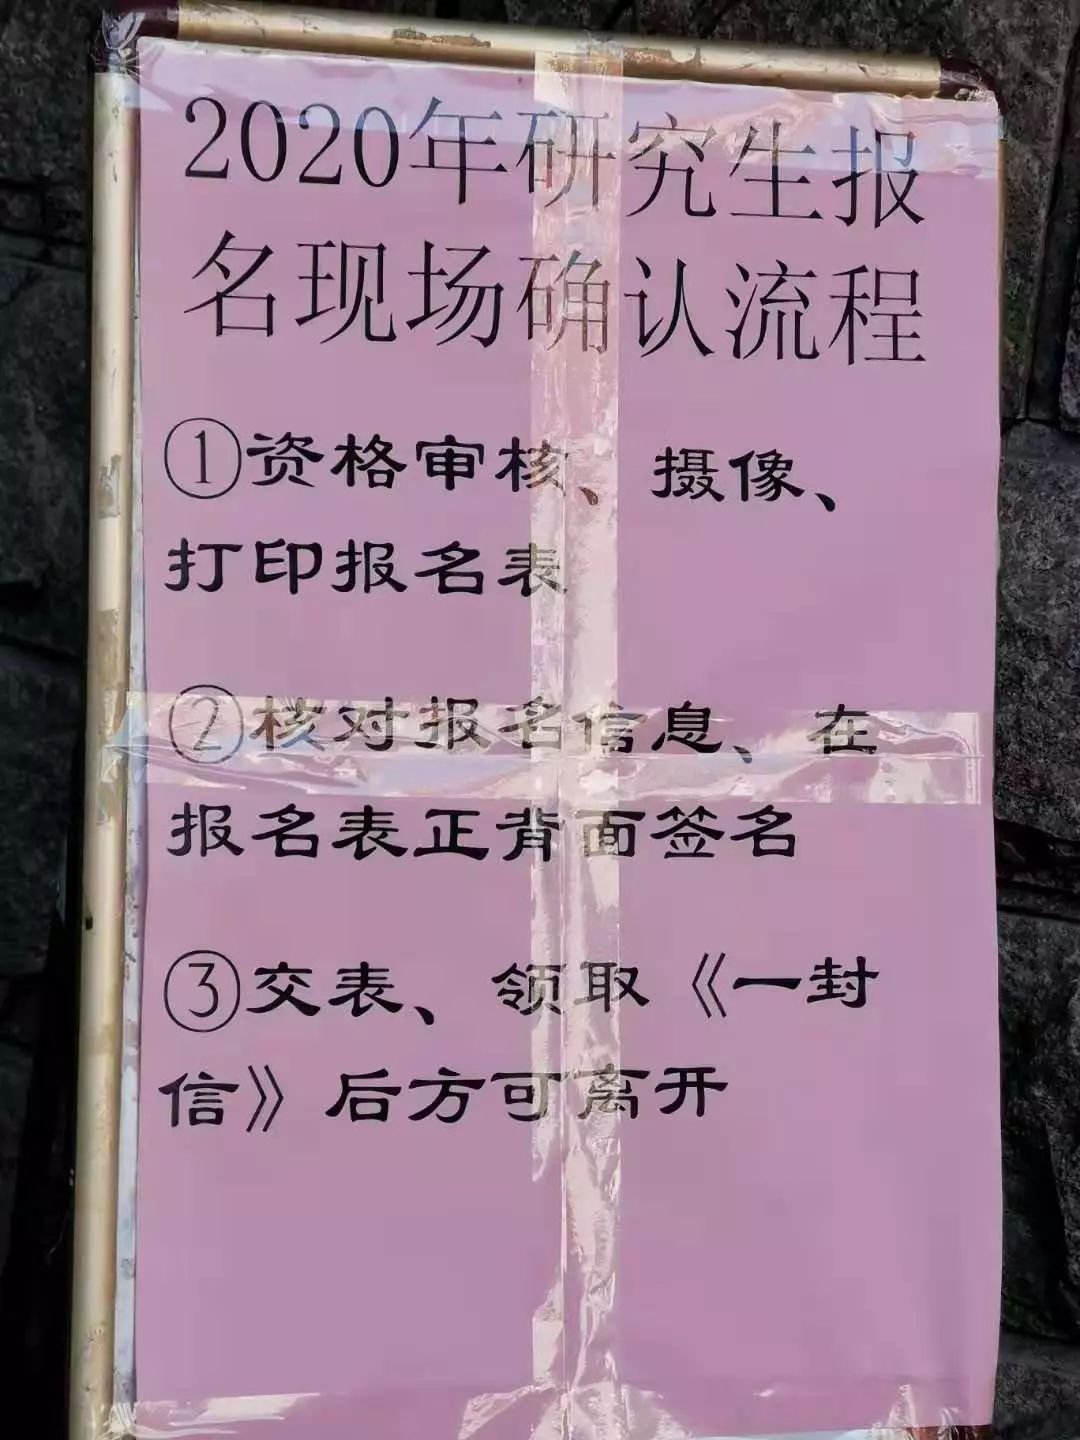 2020年研究生报
名现场确认流程
①资格审核、摄像、
打印报名表
②核对报名信息、在
报名表正背面签名
③交表、领取《一封
信》后方可离开